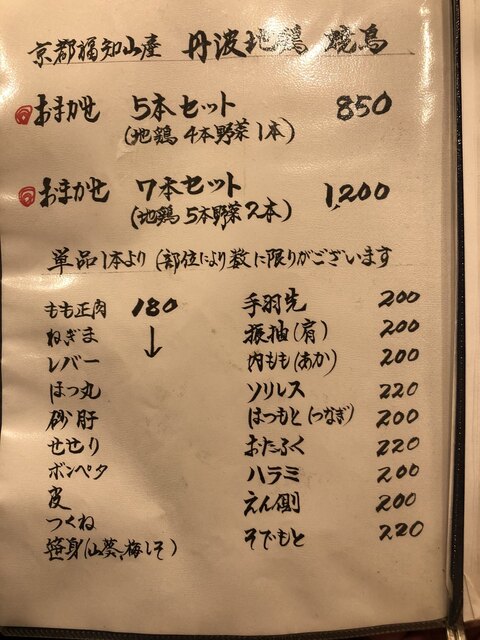 京都福知山産 丹波地鶏 焼鳥
おまかせ 5本セット 850
(地鶏 4本野菜1本)
おまかせ 7本セット 1,200
(地鶏 5本野菜2本)
単品1本より (部位により数に限りがございます
もも正肉 180
ねぎま ↓
レバー
ほっ丸
砂肝
せせり
ボンペタ
皮
つくね
笹身(山葵、梅しそ)
手羽先 200
振袖(肩) 200
内もも(あか) 200
ソリレス 220
はつもと(つなぎ) 200
おたふく 220
ハラミ 200
えん側 200
そでもと 220